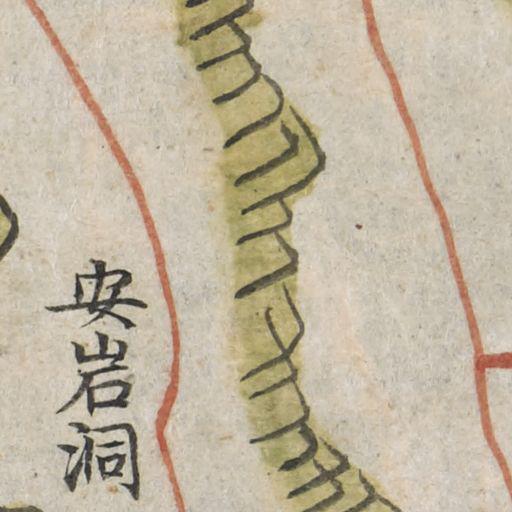 安岩洞